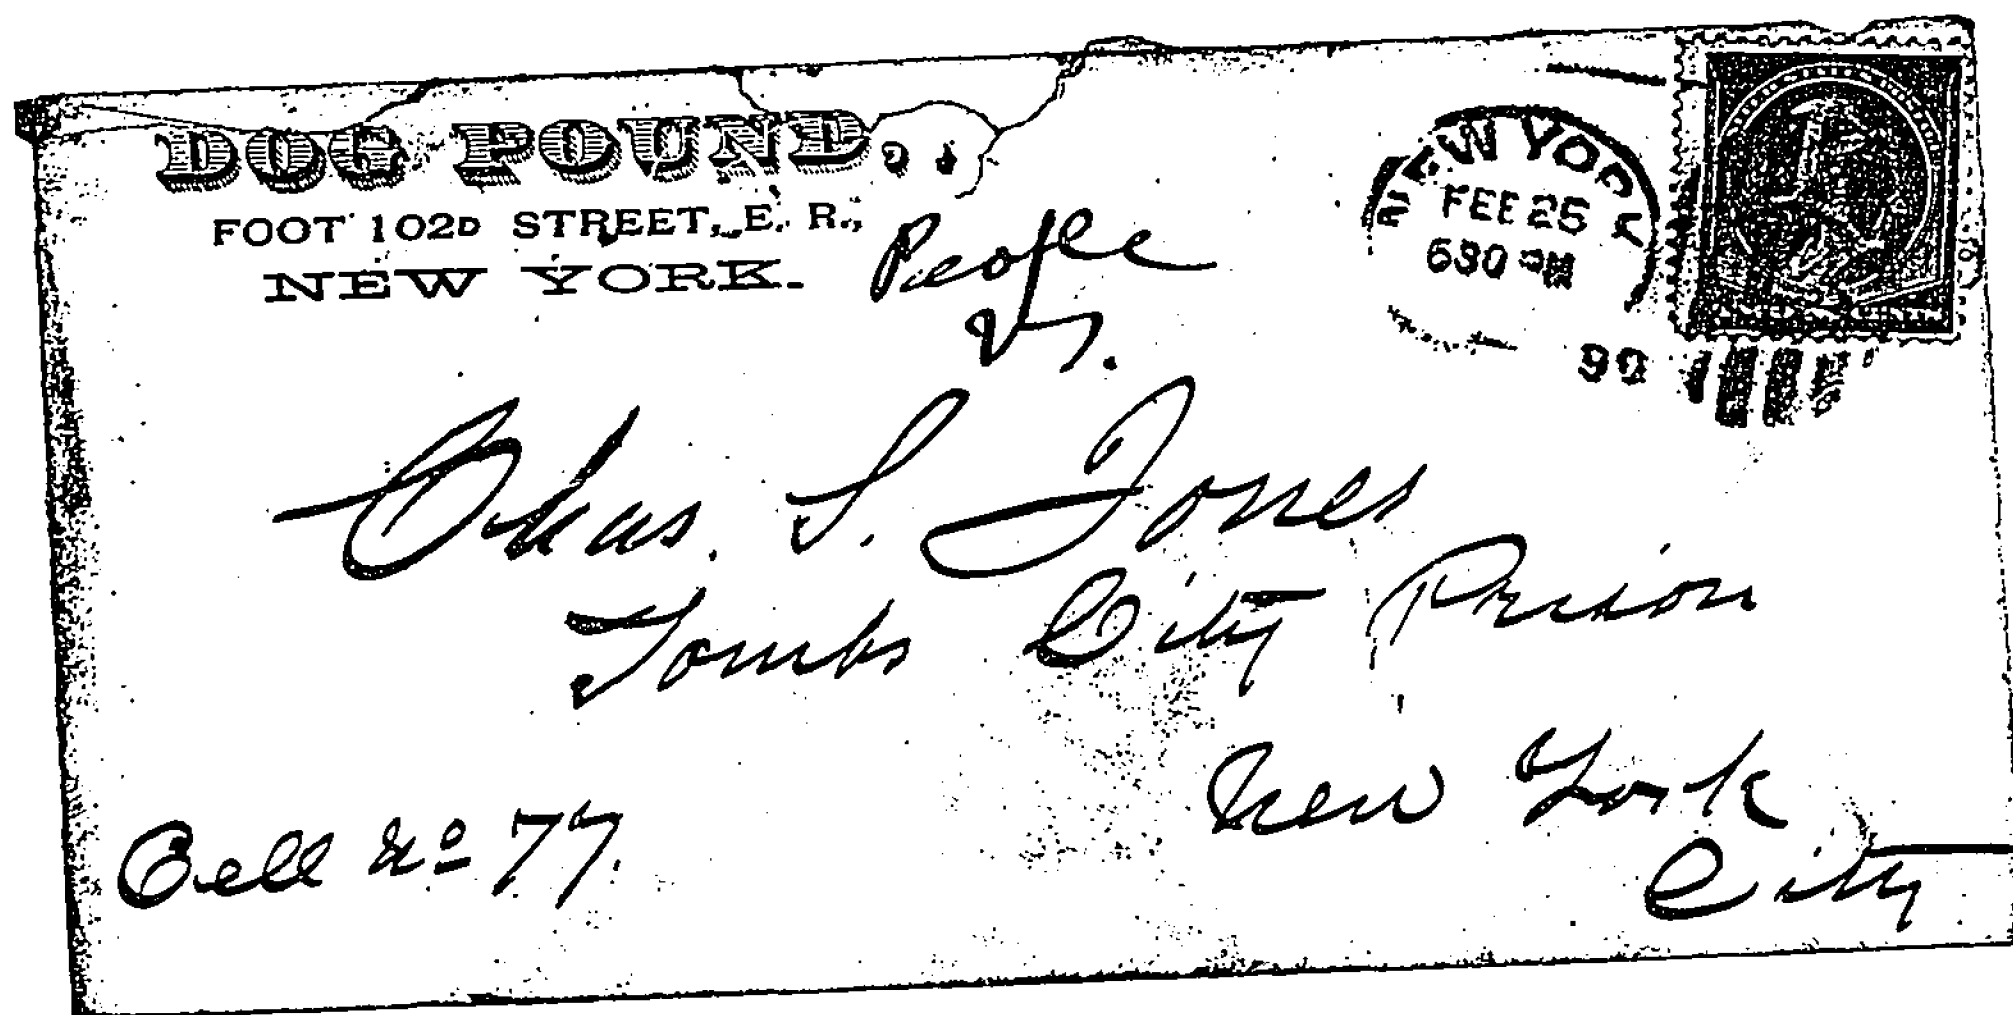 DOG POUND,
FOOT 102D STREET, E. R.,
NEW YORK.
People
vs.
NEW YORK
FEB 25
630 PM
90
Chas. S. Jones
Tombs City Prison
New York
City
Cell No 77.